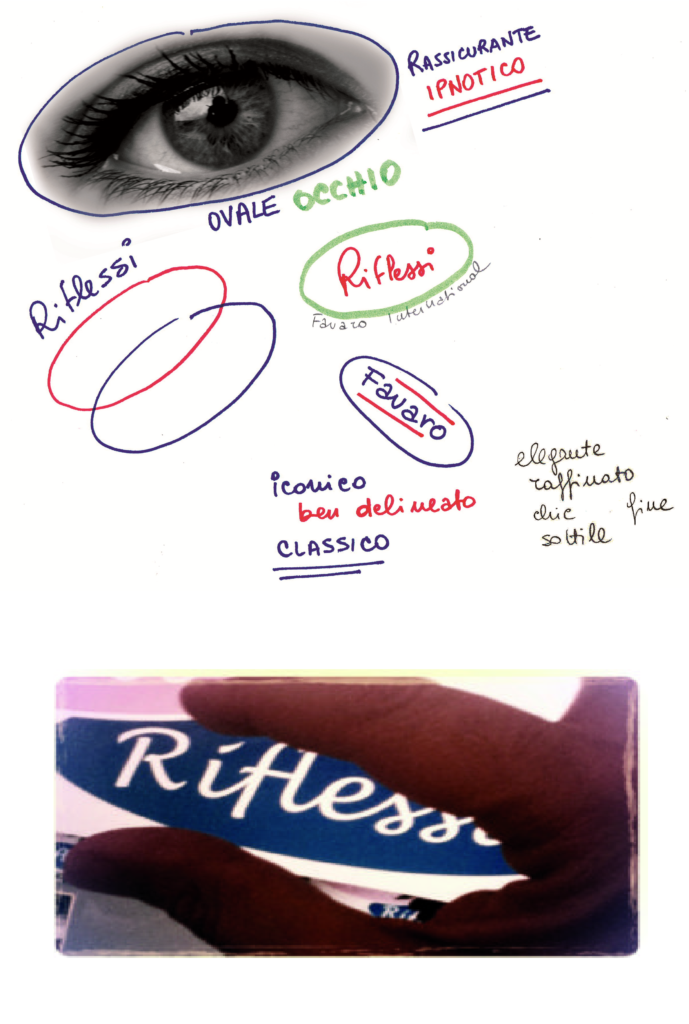 RASSICURANTE
IPNOTICO
OVALE OCCHIO
Riflessi
Riflessi
Favaro International
Favaro
iconico
ben delineato
CLASSICO
elegante
raffinato
chic fine
sottile
Riflessi
Rif